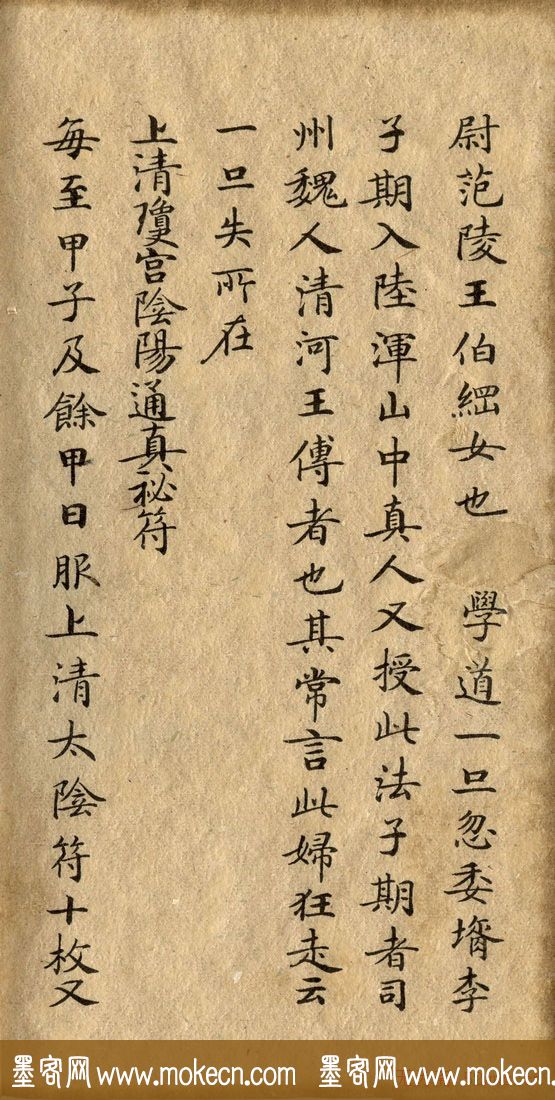 尉范陵王伯綱女也 學道一旦忽委壻李
子期入陸渾山中真人又授此法子期者司
州魏人清河王傅者也其常言此婦狂走云
一旦失所在
上清瓊宮陰陽通真祕符
每至甲子及餘甲日服上清太陰符十枚又
墨客网 www.mokecn.com 墨客网 www.mokecn.com